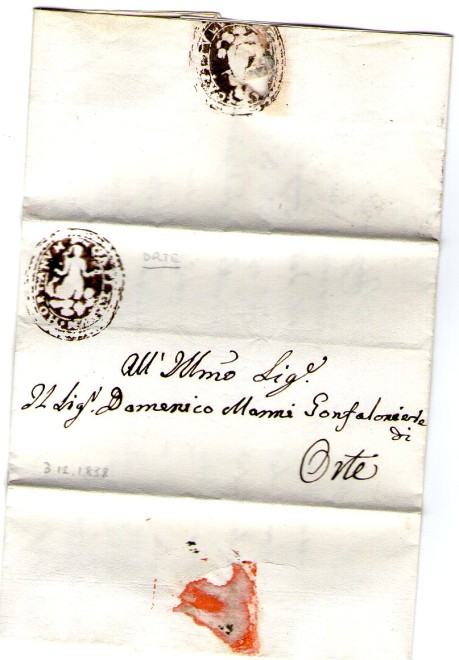 ORTE
All' Illmo Sig.r
Il Sig.r Domenico Manni Gonfaloniere
di
Orte
3.12.1838